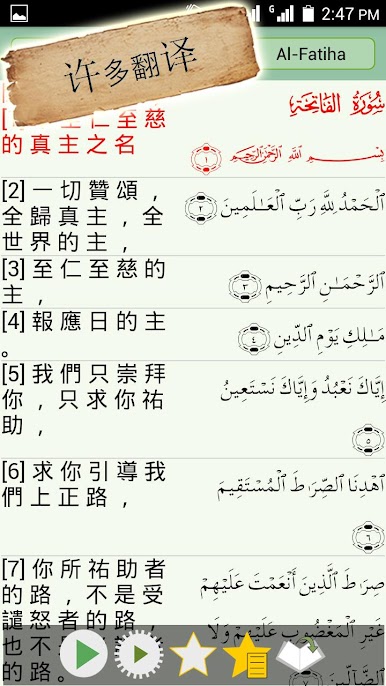 2:47 PM
许多翻译
Al-Fatiha
سُورَةُ الفَاتِحَةِ
至仁至慈
的真主之名
بِسْمِ ٱللَّهِ ٱلرَّحْمَٰنِ ٱلرَّحِيمِ ١
[2] 一切贊頌，
全歸真主，全
世界的主，
ٱلْحَمْدُ لِلَّهِ رَبِّ ٱلْعَـٰلَمِينَ ٢
[3] 至仁至慈的
主，
ٱلرَّحْمَـٰنِ ٱلرَّحِيمِ ٣
[4] 報應日的主
。
مَـٰلِكِ يَوْمِ ٱلدِّينِ ٤
[5] 我們只崇拜
你，只求你祐
助，
إِيَّاكَ نَعْبُدُ وَإِيَّاكَ نَسْتَعِينُ
٥
[6] 求你引導我
們上正路，
ٱهْدِنَا ٱلصِّرَٰطَ ٱلْمُسْتَقِيمَ
٦
[7] 你所祐助者
的路，不是受
譴怒者的路，
也不
的路。
صِرَٰطَ ٱلَّذِينَ أَنْعَمْتَ عَلَيْهِمْ
غَيْرِ ٱلْمَغْضُوبِ عَلَيْهِمْ وَلَا
ٱلضَّآلِّينَ